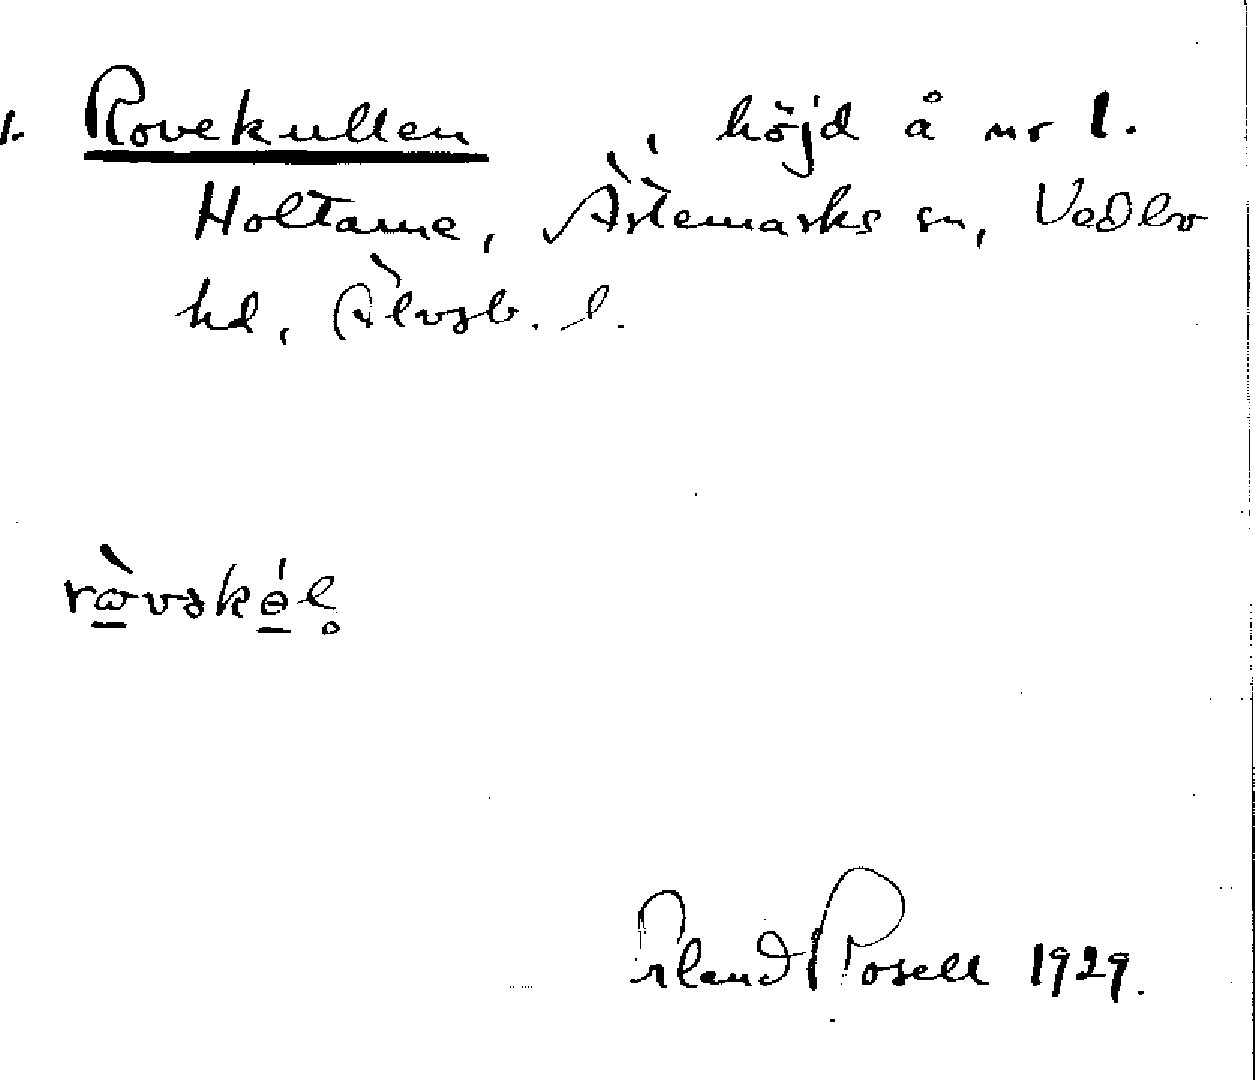 1. Rovekullen, höjd å nr 1.
Holtane, Ärtemarks sn, Vedbo
hd, Älvsb. l.
Erland Rosell 1929.